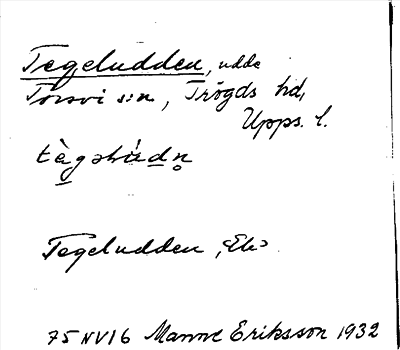 Tegeludden, udde
Torsvi s:n, Trögds hd,
Upps. l.
Tegeludden, Ek>
75 NV 16 Manne Eriksson 1932